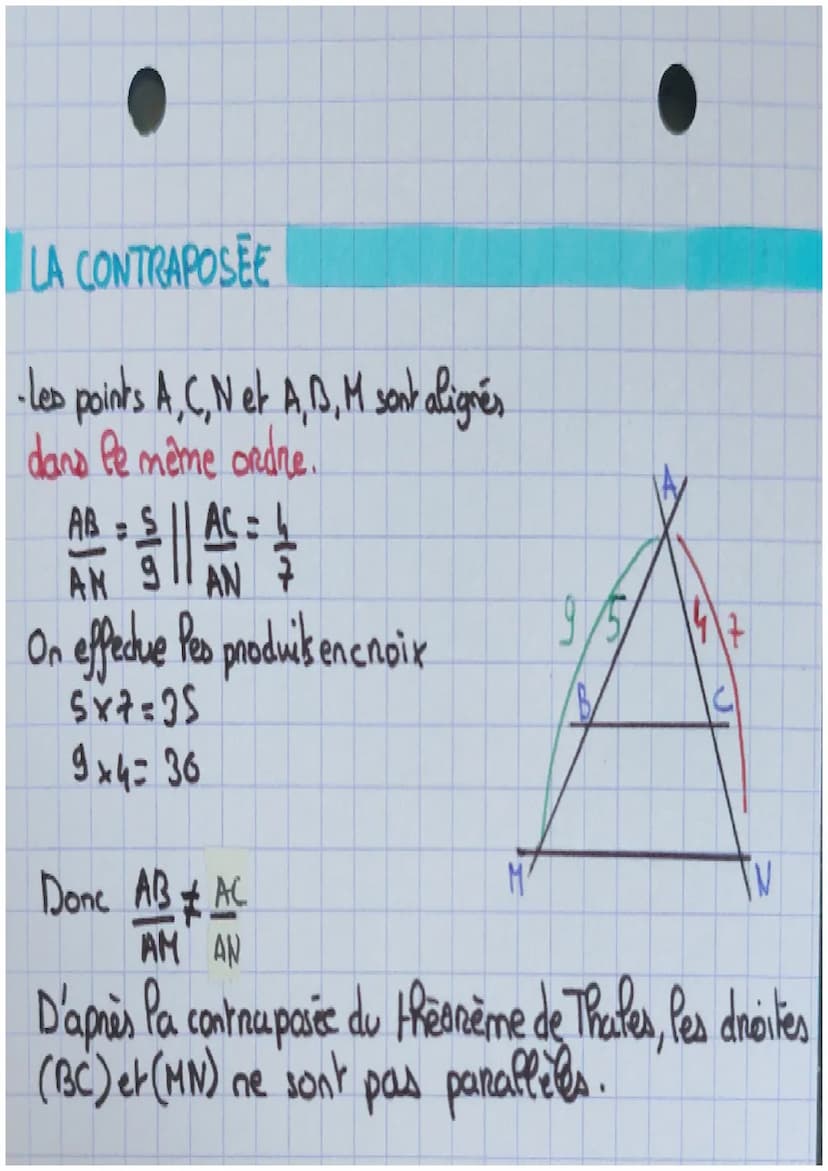 LA CONTRAPOSÉE
-Les points A, C, N et A, B, M sont alignés
dans le même ordre.
AB/AM = 5/9 || AC/AN = 4/7
On effectue les produits en croix
5x7=35
9x4= 36
Donc AB/AM ≠ AC/AN
D'après la contraposée du théorème de Thales, les droites
(BC) et (MN) ne sont pas parallèles.
A
9 5 4 7
B C
M N